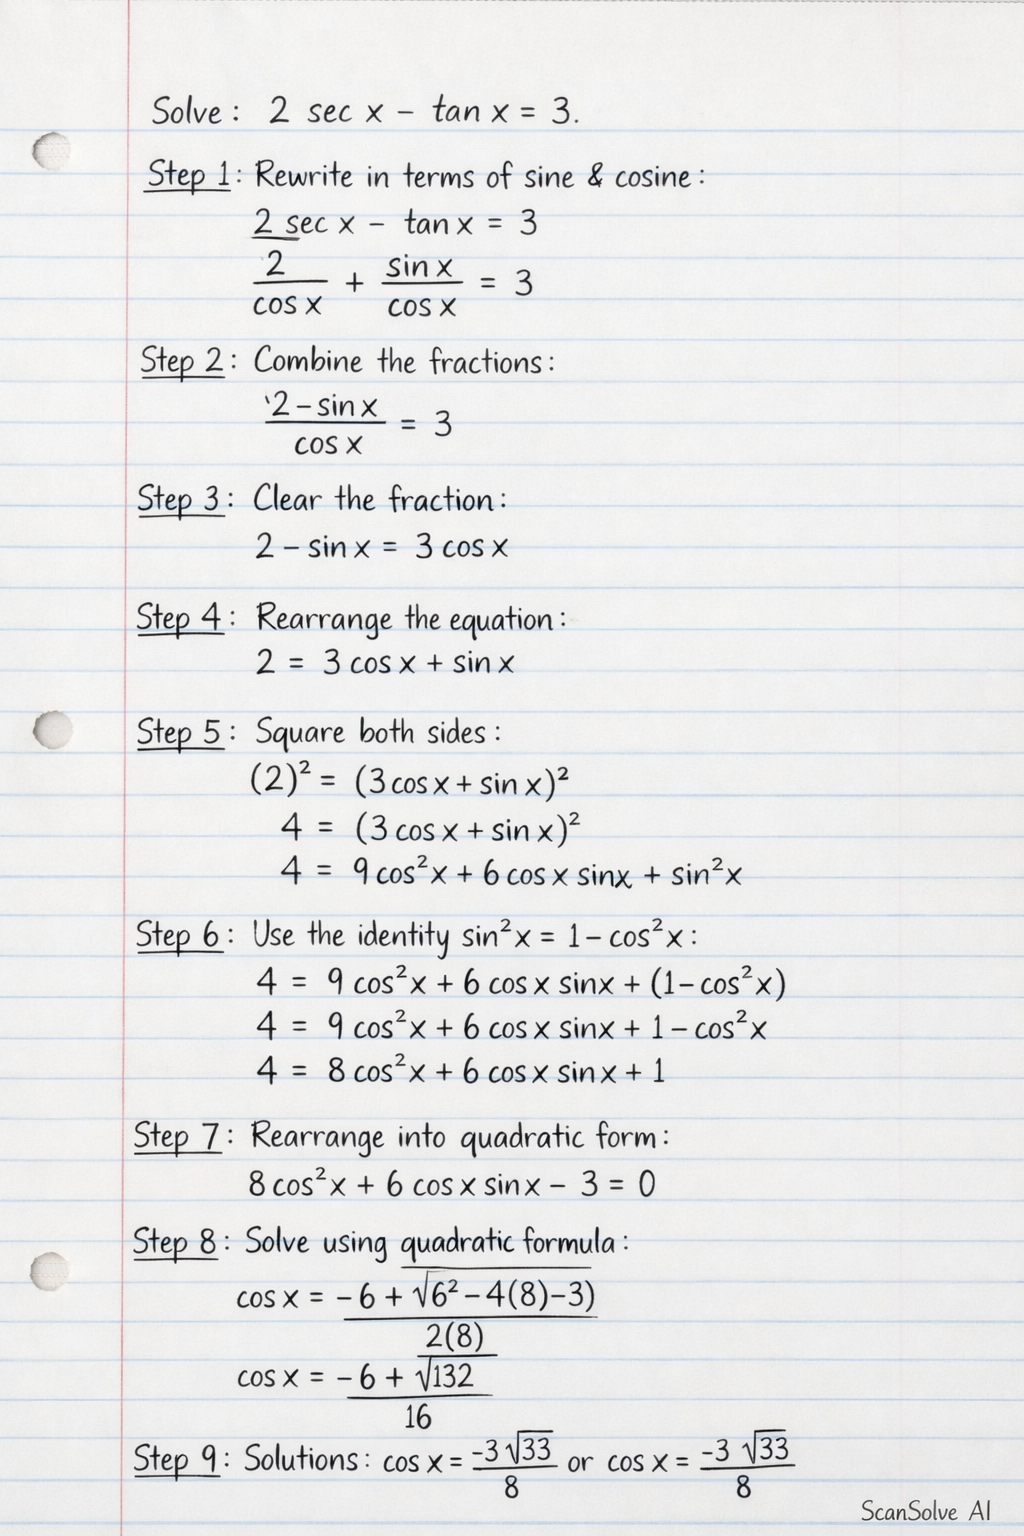 Solve: 2 sec x − tan x = 3.
Step 1: Rewrite in terms of sine & cosine:
2 sec x − tan x = 3
2/cos x + sin x/cos x = 3
Step 2: Combine the fractions:
'2 − sin x/cos x = 3
Step 3: Clear the fraction:
2 − sin x = 3 cos x
Step 4: Rearrange the equation:
2 = 3 cos x + sin x
Step 5: Square both sides:
(2)² = (3 cos x + sin x)²
4 = (3 cos x + sin x)²
4 = 9 cos²x + 6 cos x sinx + sin²x
Step 6: Use the identity sin²x = 1 − cos²x:
4 = 9 cos²x + 6 cos x sinx + (1 − cos²x)
4 = 9 cos²x + 6 cos x sinx + 1 − cos²x
4 = 8 cos²x + 6 cos x sin x + 1
Step 7: Rearrange into quadratic form:
8 cos²x + 6 cos x sin x − 3 = 0
Step 8: Solve using quadratic formula:
cos x = −6 + √6² − 4(8)−3)/2(8)
cos x = −6 + √132/16
Step 9: Solutions: cos x = -3 √33/8 or cos x = -3 √33/8
ScanSolve AI